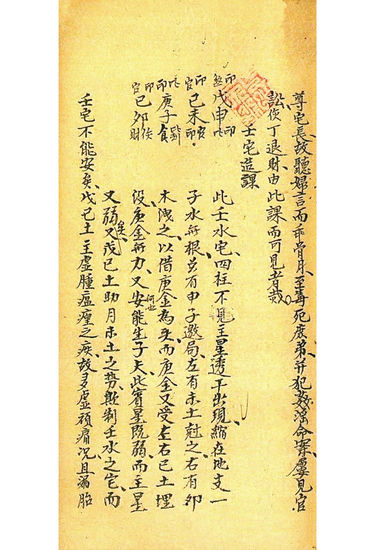 尊宅長故聽婦言而乖骨肉至毒死庶弟并犯姦淫命案屢見官
訟傷丁退財由此課而可見者哉
壬宅造課
煞戊申印比
官己未官印
印庚子比劫
官己卯傷財
此壬水宅四柱不見主星透干出現縮在地支一
子水無根只有申子邀局左有未土尅之右有卯
木洩之以借庚金為矣而庚金又受左右己土埋
没庚金無力又安能生子夫此賓星既弱而主星
又弱又茂己土助月未土之勢斯制壬水之宅而
壬宅不能安矣戊己土主虛腫瘟瘟之疾故多虛 癆況且漏胎